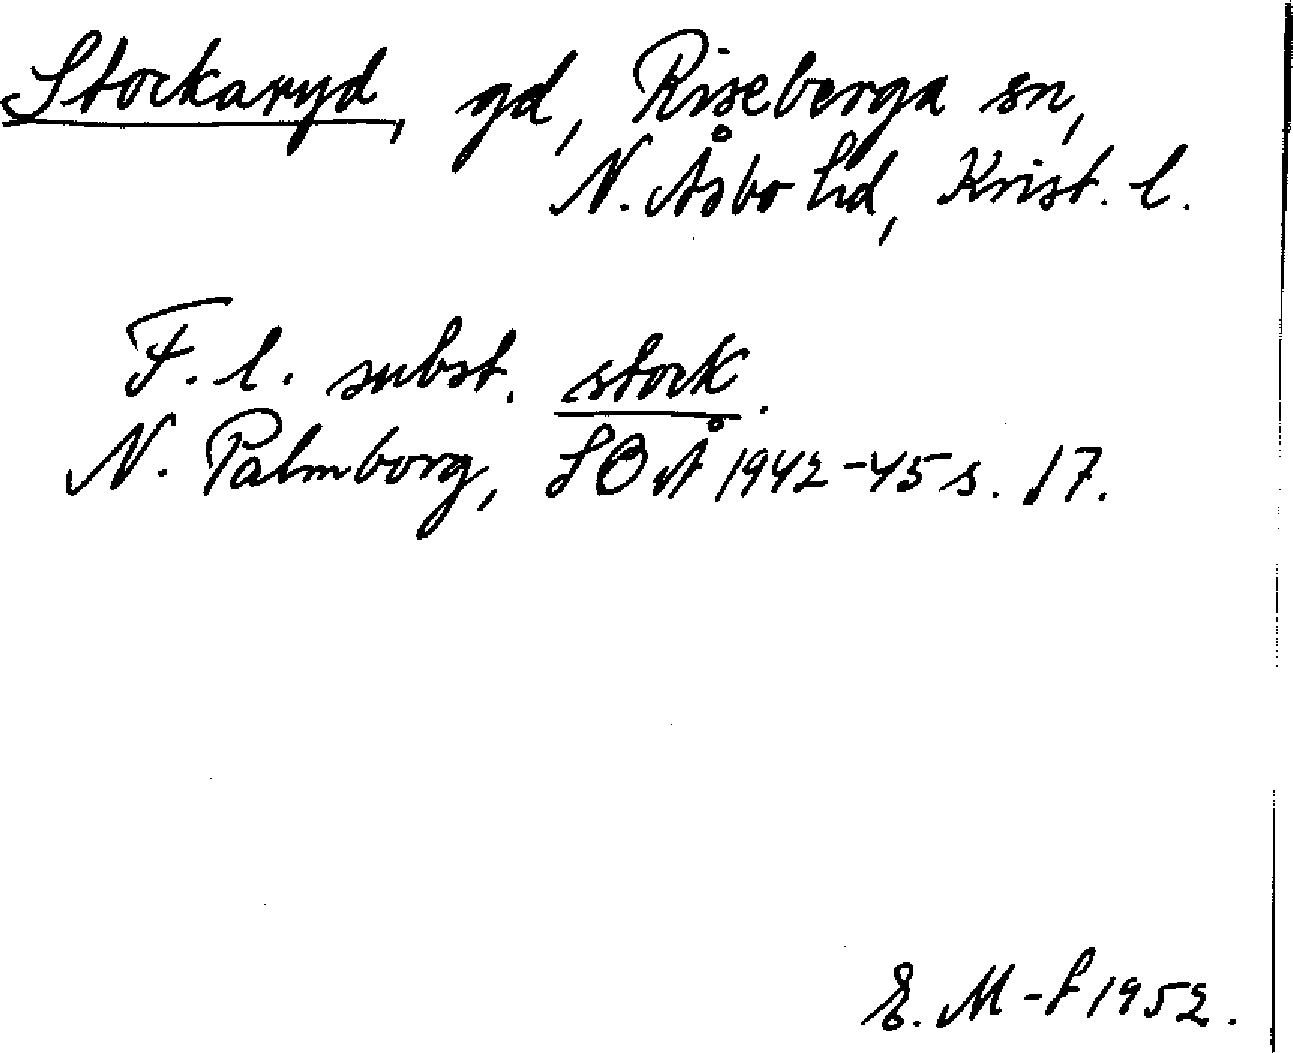 Stockaryd, gd, Riseberga sn,
N. Åsbo hd, Krist. l.
F. l. subst. stock.
N. Palmborg, SOÅ 1942-45 s. 17.
E. M-f 1952.